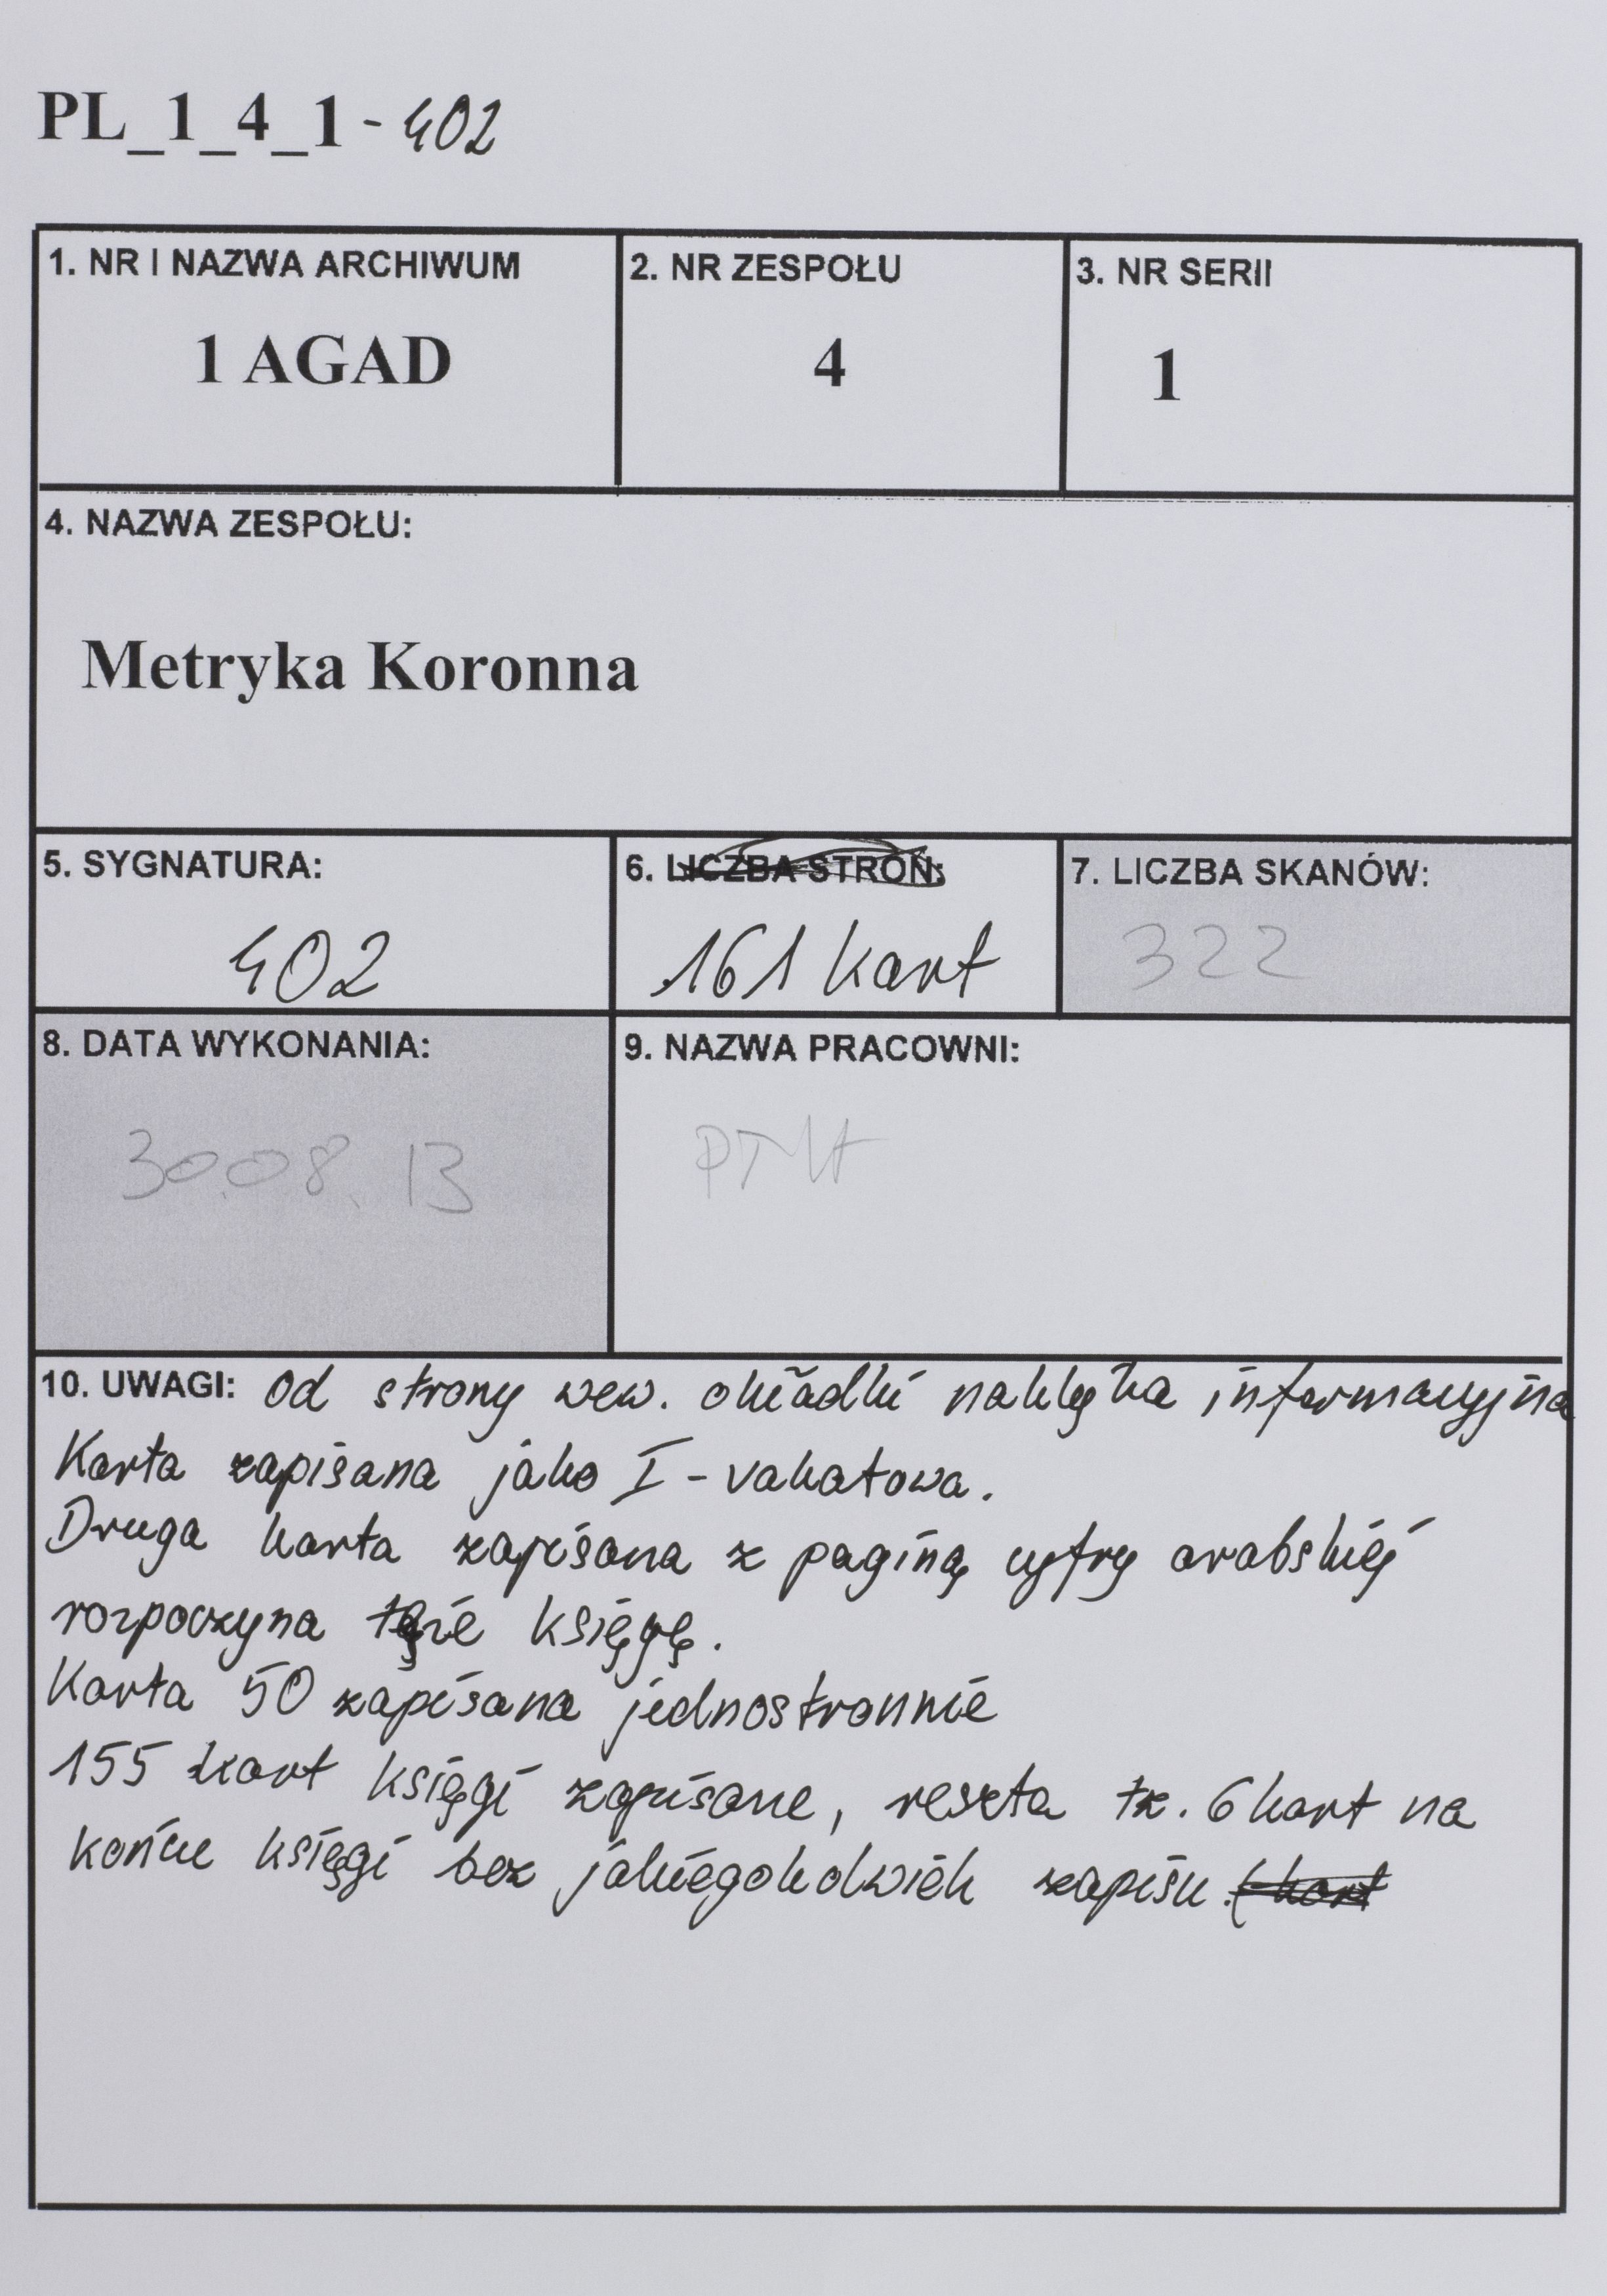 PL_1_4_1 - 402
1. NR I NAZWA ARCHIWUM
1 AGAD
2. NR ZESPOŁU
4
3. NR SERII
1
4. NAZWA ZESPOŁU:
Metryka Koronna
5. SYGNATURA:
402
6. LICZBA STRON:
161 kart
7. LICZBA SKANÓW:
322
8. DATA WYKONANIA:
30.08.13
9. NAZWA PRACOWNI:
10. UWAGI: Od strony wew. okładki naklejka informacyjna
Karta zapisana jako I - vakatowa.
Druga karta zapisana z paginą cyfry arabskiej
rozpoczyna księgę.
Karta 50 zapisana jednostronnie
155 kart księgi zapisane, reszta tz. 6 kart na
końcu księgi bez jakiegokolwiek zapisu. (kart